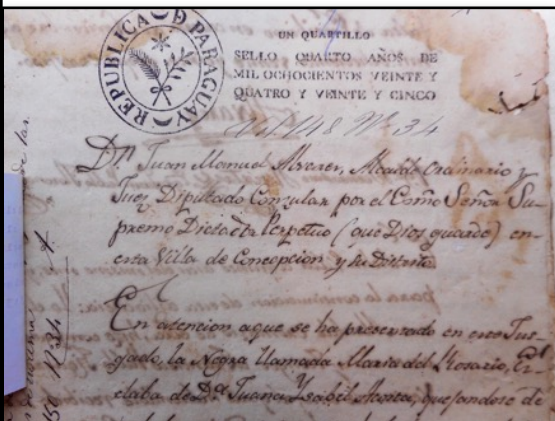 REPUBLICA D PARAGUAY
UN QUARTILLO
SELLO QUARTO AÑOS DE
MIL OCHOCIENTOS VEINTE Y
QUATRO Y VEINTE Y CINCO
Vol 148 Nº 34
Dⁿ Juan Manuel Alvarez, Alcalde Ordinario y
Juez Diputado Consular por el Exmo Señor Su-
premo Dictador Perpetuo (que Dios guarde) en-
esta Villa de Concepcion y su Distrito
En atencion aque se ha presentado en este Jus-
gado, la Negra llamada Maria del Rosario, Es-
claba de Dª Juana Ysabel
de las
Nº 34